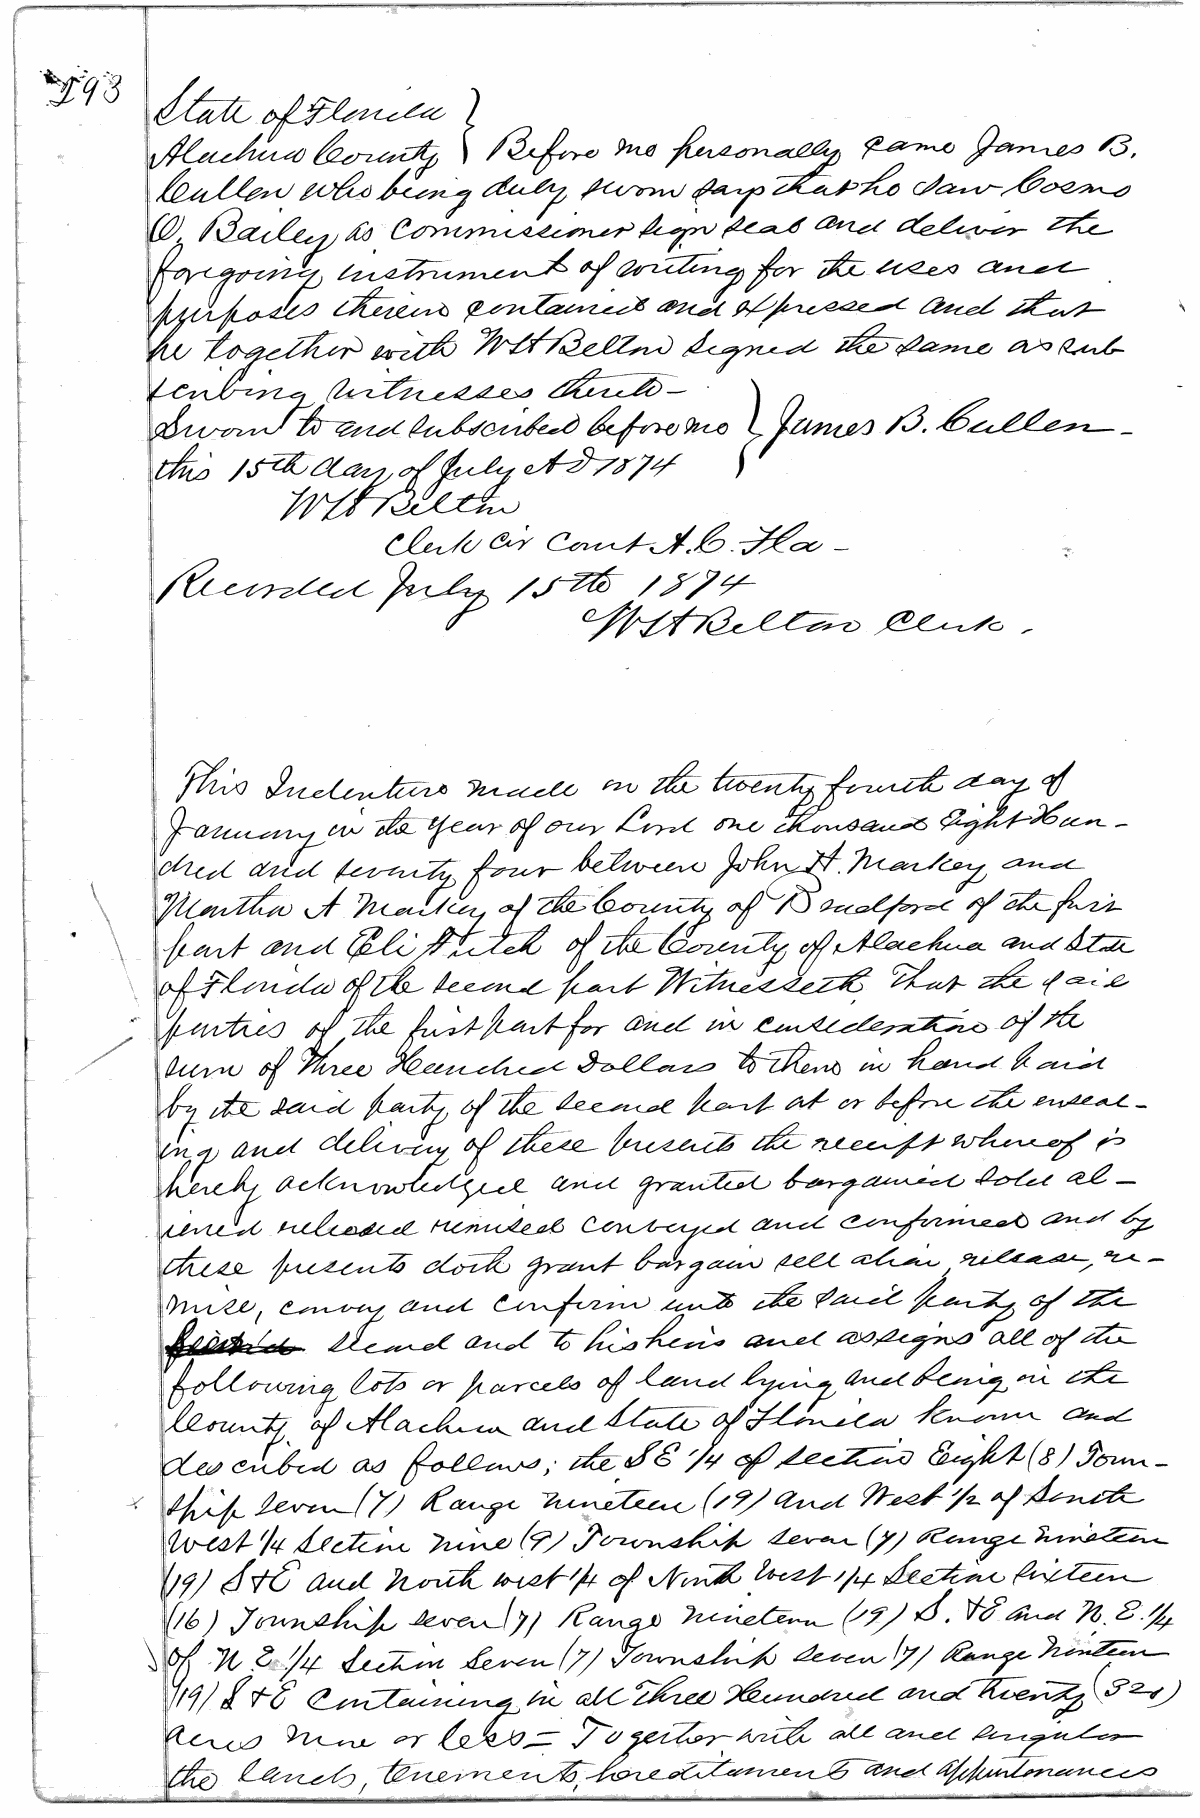 193
State of Florida }
Alachua County } Before me personally came James B.
Cullen who being duly sworn says that he saw Cosmo
O. Bailey as Commissioner sign seal and deliver the
foregoing instrument of writing for the uses and
purposes therein contained and expressed and that
he together with WH Belton signed the same as sub
scribing witnesses thereto -
Sworn to and subscribed before me } James B. Cullen -
this 15th day of July A D 1874
WH Belton
Clerk Cir Court A. C. Fla -
Recorded July 15th 1874
WH Belton Clerk.
This Indenture made on the twenty fourth day of
January in the year of our Lord one thousand Eight Hun-
dred and seventy four between John H. Markey and
Martha A Markey of the County of Bradford of the first
part and Eli Futch of the County of Alachua and State
of Florida of the second part Witnesseth, That the said
parties of the first part for and in consideration of the
sum of Three Hundred Dollars to them in hand paid
by the said party of the second part at or before the enseal-
ing and delivery of these presents the receipt whereof is
hereby acknowledged and granted bargained sold al-
iened released remised conveyed and confirmed and by
these presents doth grant bargain sell alien, release, re-
mise, convey and confirm unto the said party of the
second and to his heirs and assigns all of the
following lots or parcels of land lying and being in the
County of Alachua and State of Florida known and
described as follows; the SE 1/4 of section Eight (8) Town-
ship seven (7) Range nineteen (19) and West 1/2 of South
West 1/4 Section nine (9) Township seven (7) Range nineteen
(19) S & E and North west 1/4 of North West 1/4 Section sixteen
(16) Township seven (7) Range nineteen (19) S. & E and N. E. 1/4
of N E 1/4 Section Seven (7) Township seven (7) Range Nineteen
(19) S & E Containing in all Three Hundred and twenty (320)
acres more or less = Together with all and singular
the lands, tenements, hereditaments and appurtenances